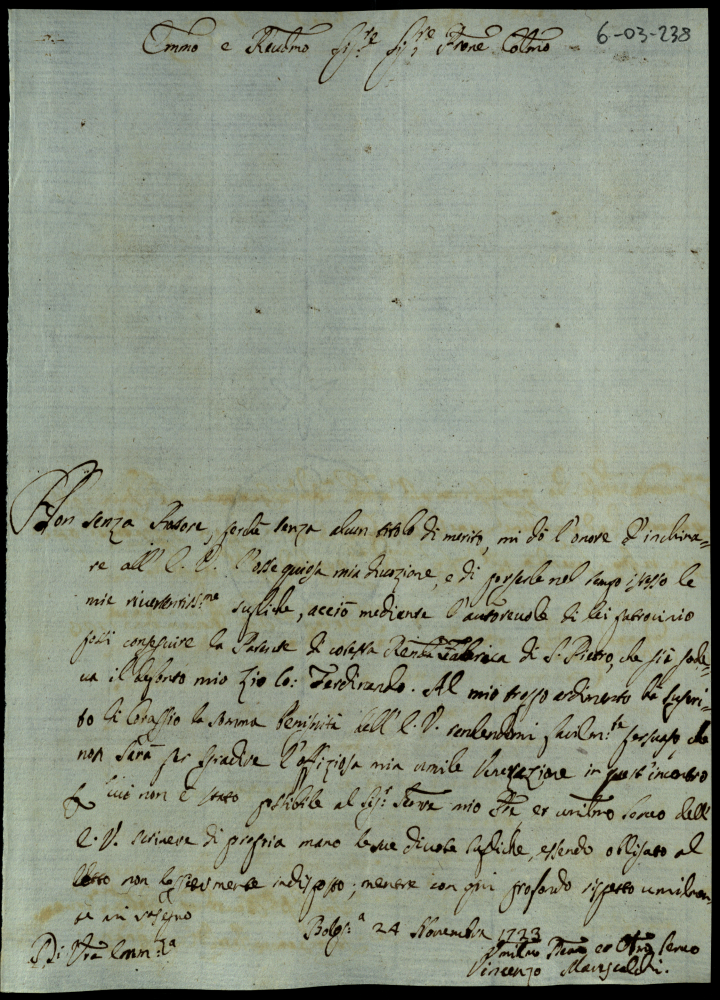 Emmo e Revdmo Sig.re Sig.re Prone Colmo
6-03-238
Non senza rossore, perche senza alcun titolo di merito, mi dò l'onore d'inchina=
re all' E. V. l'ossequiosa mia divozione, e di porgerle nel tempo stesso le
mie riverentissime supliche, acciò mediante l'autorevole di lei patrocinio
possi conseguire la Patente di cotesta Renda Fabrica di S. Pietro, che già gode=
va il defonto mio Zio Co: Ferdinando. Al mio troppo ardimento hà suseri=
to di coraggio la somma benignità dell' E. V. rendendomi persuaso, che
non sarà per sgradire l'offiziosa mia umile venerazione in quest'incontro
cui non è stato possibile al Sig.r mio Pre et umilmo servo dell'
E. V. scrivere di propria mano le sue divote supliche, essendo obligato al
letto non leggiermente indisposto; mentre con più profondo rispetto umilmen=
te mi rasegno
Bolog.a 24 Novembre 1723
Di Vra Emin.za
Umilmo Devmo et Obmo Servo
Vincenzo Marescalchi.